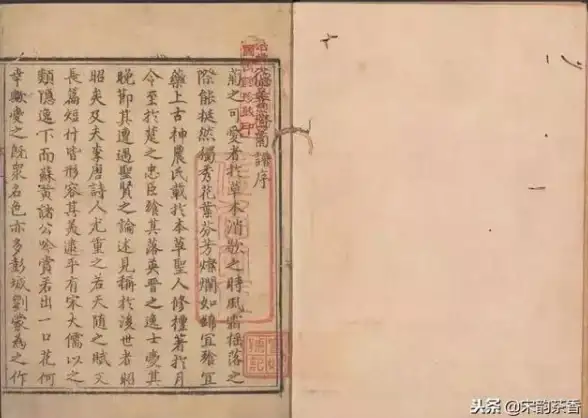 德善齋菊譜序
菊之可愛者於草木消歇之時風霜搖落之
際能挺然獨秀花葉芬芳燦爛如錦宜飡宜
藥上古神農氏載於本草聖人修禮著於月
令至於楚之忠臣飡其落英晉之逸士愛其
晚節其遭遇聖賢之論述見稱於後世者昭
昭矣及夫李唐詩人尤重之若天隨之賦又
長篇短什皆形容其美逮乎有宋大儒以之
類隱逸下而蘇黃諸公吟賞若出一口花何
幸歟愛之既衆名色亦多彭城劉蒙為之作
头条 @宋韵茶香